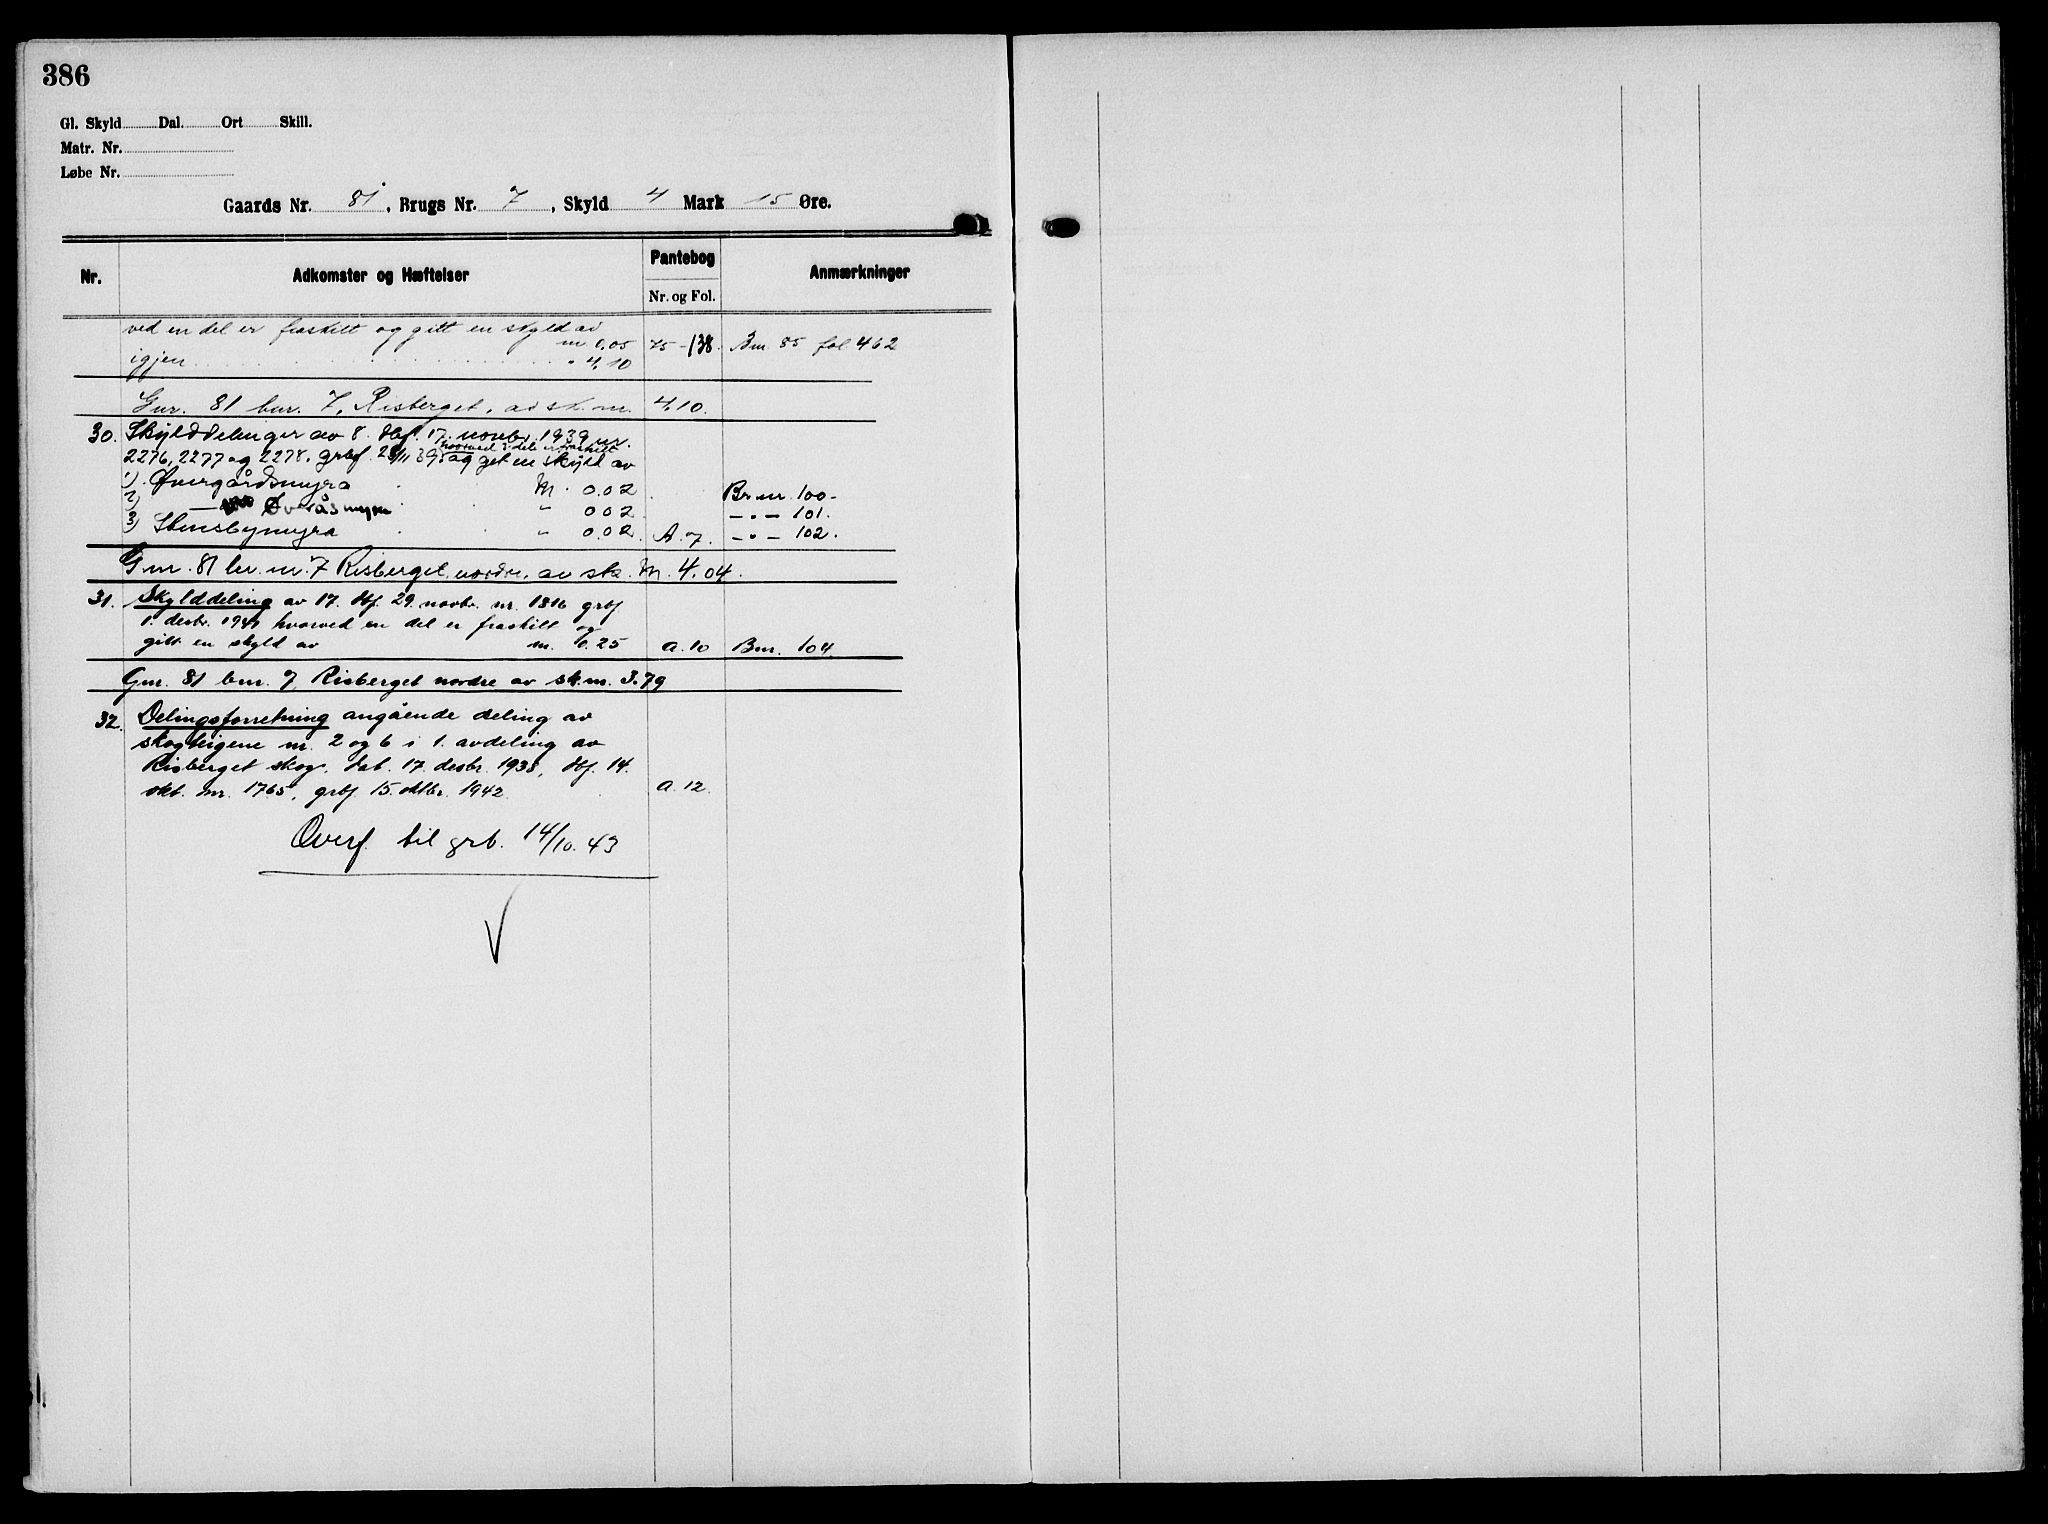 386
Gl. Skyld Dal. Ort Skill.
Matr. Nr.
Løbe Nr.
Gaards Nr. 81, Brugs Nr. 7, Skyld 4 Mark 15 Øre.
Nr. Adkomster og Hæftelser Pantebog Nr. og Fol. Anmærkninger
ved en del er fraskilt og gitt en skyld av
m 0,05 75-138. Bnr. 85 fol 462
igjen " 4,10
Gnr. 81 bnr. 7, Risberget, av sk. m. 4,10.
30. Skylddelinger av 8. dbf. 17. novbr. 1939 nr.
hvorved 3 dele er fraskilt
2276, 2277 og 2278, grbf. 23/11 39. og get en skyld av
1) Øvergårdsmyra M. 0.02. Br.nr. 100-
2) — Øveråsmyra " 0.02. -"- 101.
3) Stensbymyra " 0.02. A. 7. -"- 102.
Gnr. 81 br. nr. 7 Risberget nordre, av sk. M. 4.04.
31. Skylddeling av 17. dbf. 29. novbr. nr. 1816 grbf
1. desbr. 1941 hvorved en del er fraskilt og
gitt en skyld av m. 0.25 A. 10 Bnr. 104.
Gnr. 81 bnr. 7, Risberget nordre av sk.m. 3.79
32. Delingsforretning angående deling av
skogteigene nr. 2 og 6 i 1. avdeling av
Risberget skog, dat. 17. desbr. 1938, dbf. 14.
okt. nr. 1765, grbf. 15. oktbr. 1942. A. 12.
Overf. til grb. 14/10. 43